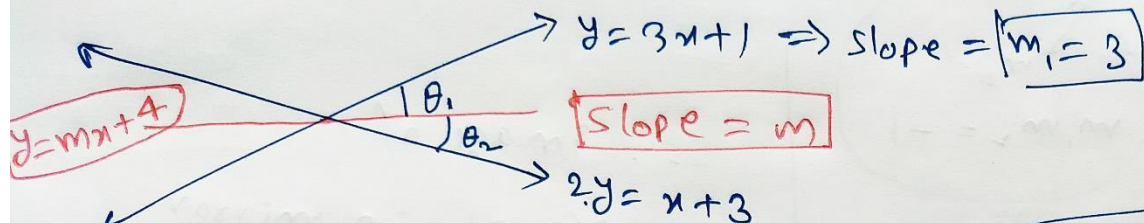 y = 3x+1 ⇒ slope = m₁ = 3
θ₁
y=mx+4
slope = m
θ₂
2y = x+3